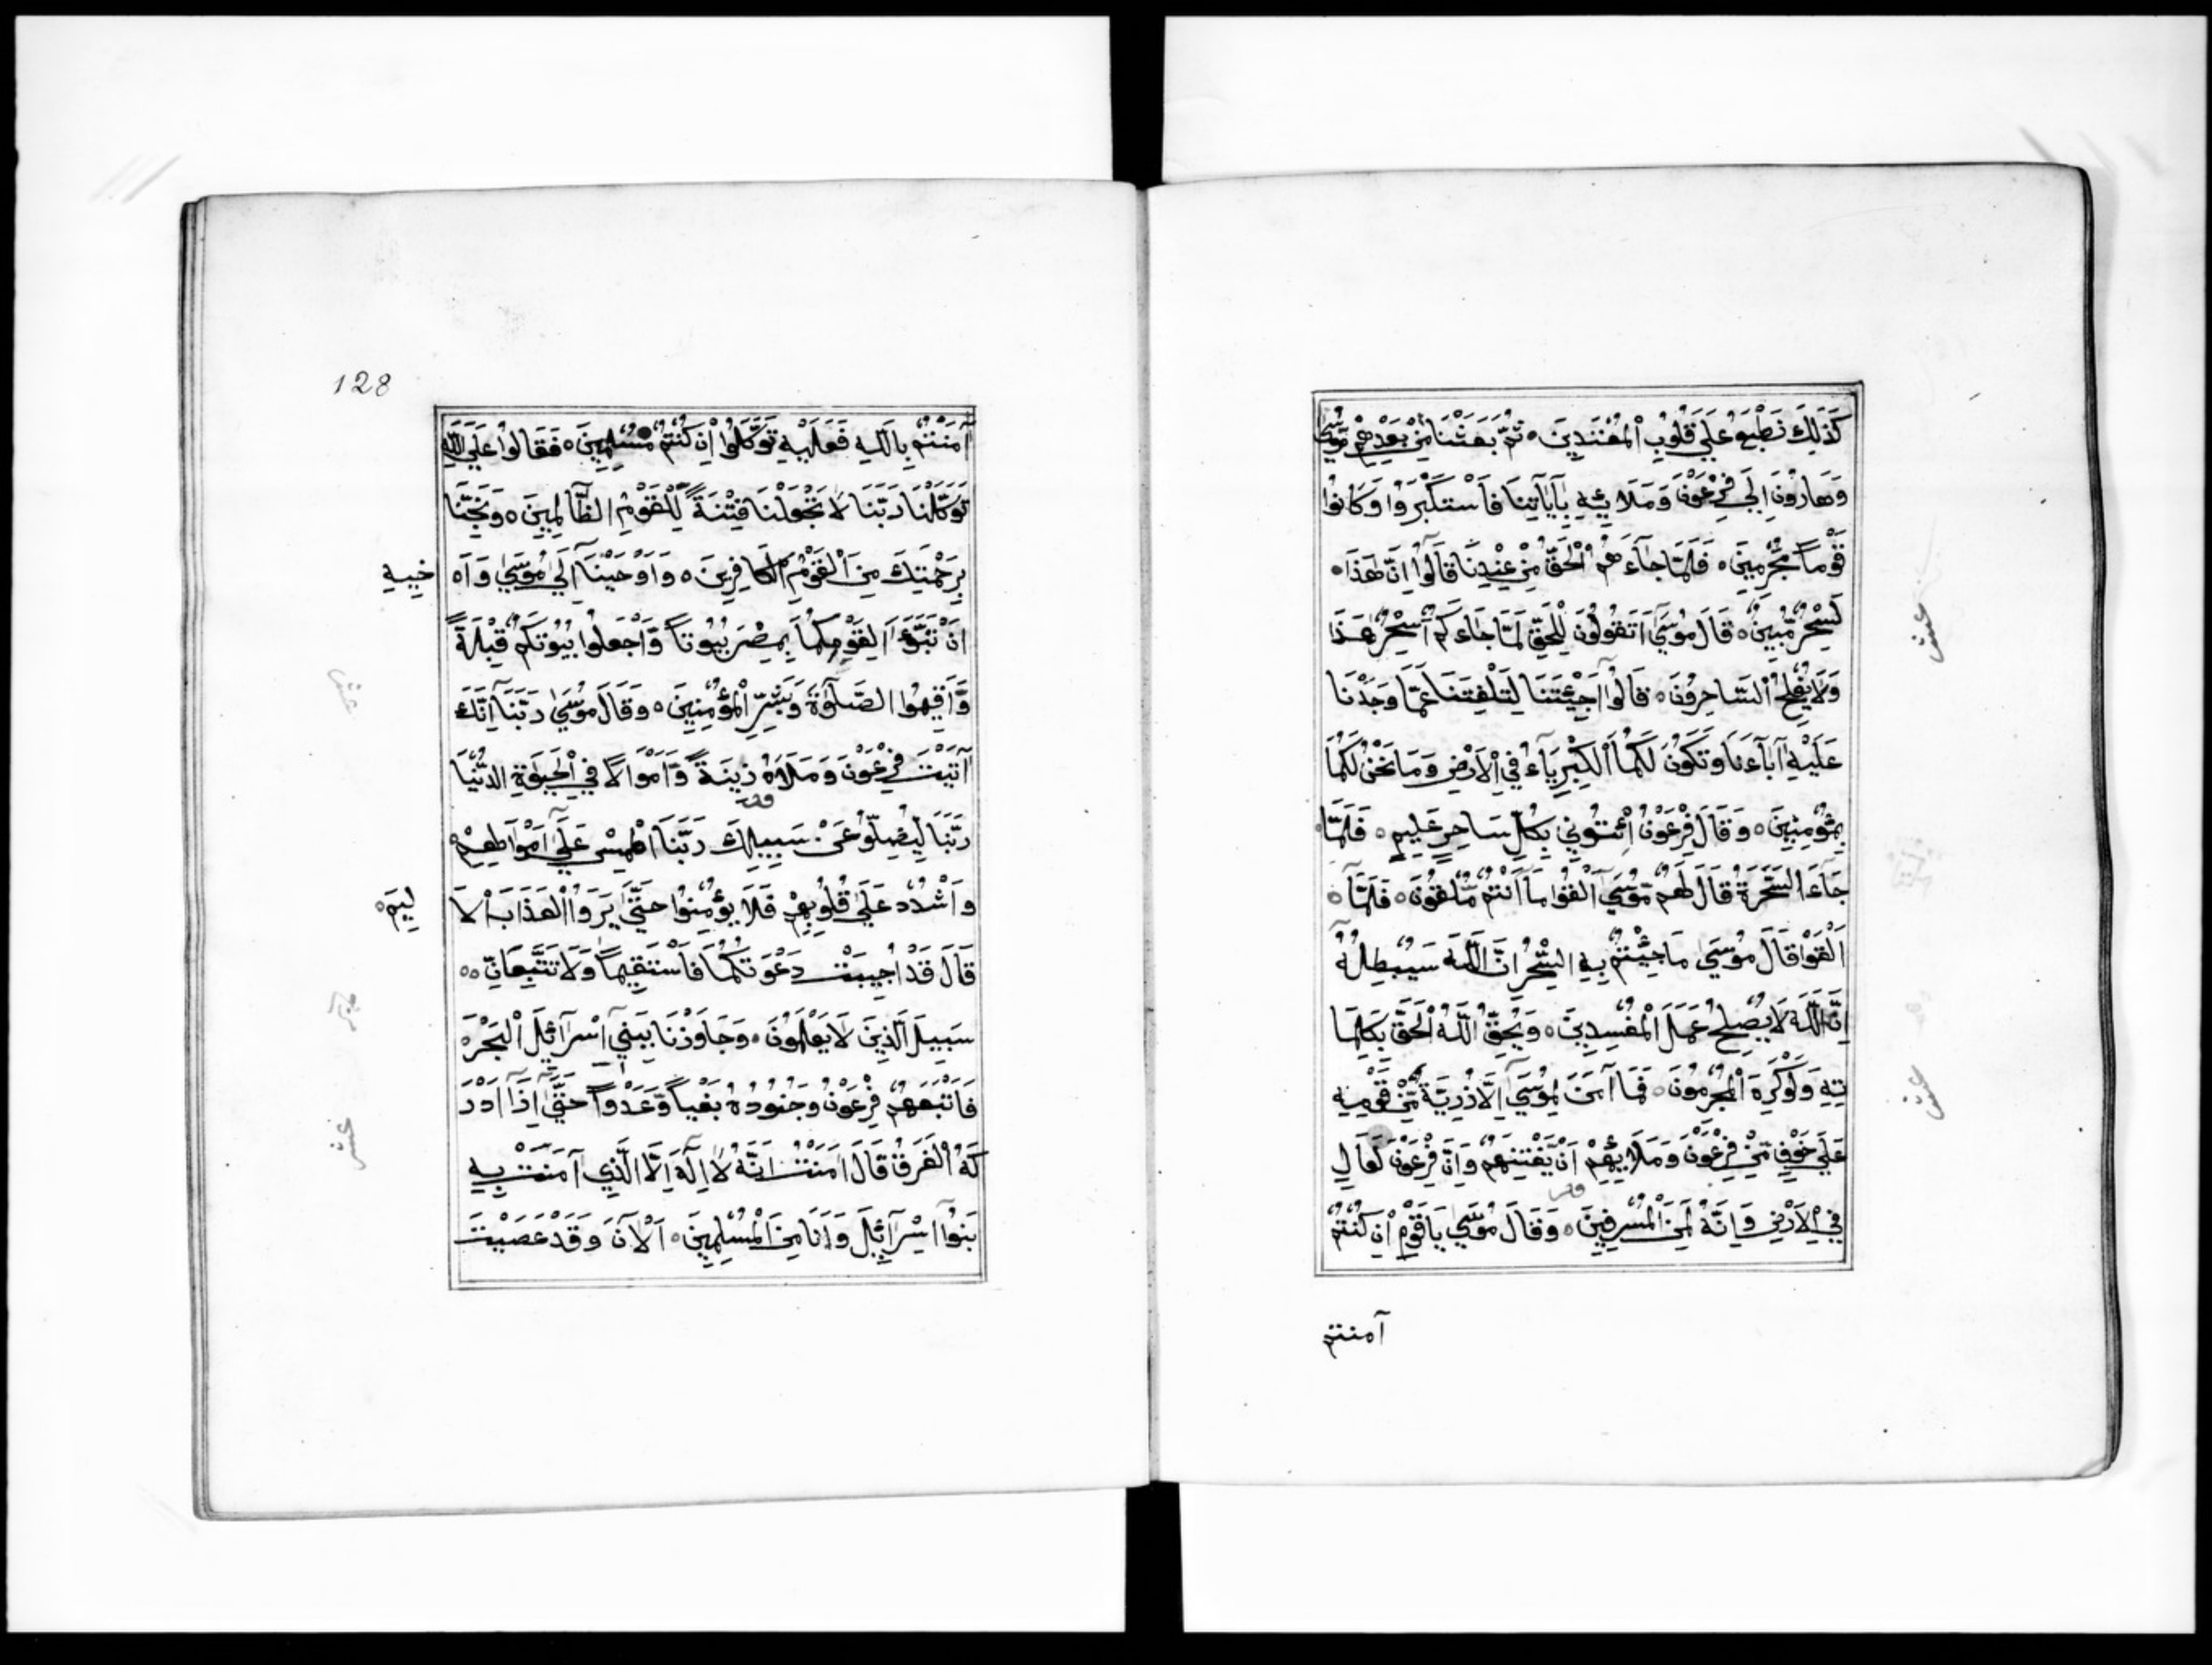 كَذَلِكَ نَطْبَعُ عَلَى قُلُوبِ الْمُعْتَدِينَ ۝ ثُمَّ بَعَثْنَا مِنْ بَعْدِهِمْ مُوسَى
وَهَارُونَ إِلَى فِرْعَوْنَ وَمَلَائِهِ بِآيَاتِنَا فَاسْتَكْبَرُوا وَكَانُوا
قَوْمًا مُجْرِمِينَ ۝ فَلَمَّا جَاءَهُمُ الْحَقُّ مِنْ عِنْدِنَا قَالُوا إِنَّ هَذَا
لَسِحْرٌ مُبِينٌ ۝ قَالَ مُوسَى أَتَقُولُونَ لِلْحَقِّ لَمَّا جَاءَكُمْ أَسِحْرٌ هَذَا
وَلَا يُفْلِحُ السَّاحِرُونَ ۝ قَالُوا أَجِئْتَنَا لِتَلْفِتَنَا عَمَّا وَجَدْنَا
عَلَيْهِ آبَاءَنَا وَتَكُونَ لَكُمَا الْكِبْرِيَاءُ فِي الْأَرْضِ وَمَا نَحْنُ لَكُمَا
بِمُؤْمِنِينَ ۝ وَقَالَ فِرْعَوْنُ ائْتُونِي بِكُلِّ سَاحِرٍ عَلِيمٍ ۝ فَلَمَّا
جَاءَ السَّحَرَةُ قَالَ لَهُمْ مُوسَى أَلْقُوا مَا أَنْتُمْ مُلْقُونَ ۝ فَلَمَّا
أَلْقَوْا قَالَ مُوسَى مَا جِئْتُمْ بِهِ السِّحْرُ إِنَّ اللَّهَ سَيُبْطِلُهُ
إِنَّ اللَّهَ لَا يُصْلِحُ عَمَلَ الْمُفْسِدِينَ ۝ وَيُحِقُّ اللَّهُ الْحَقَّ بِكَلِمَا
تِهِ وَلَوْ كَرِهَ الْمُجْرِمُونَ ۝ فَمَا آمَنَ لِمُوسَى إِلَّا ذُرِّيَّةٌ مِنْ قَوْمِهِ
عَلَى خَوْفٍ مِنْ فِرْعَوْنَ وَمَلَائِهِمْ أَنْ يَفْتِنَهُمْ وَإِنَّ فِرْعَوْنَ لَعَالٍ
فِي الْأَرْضِ وَإِنَّهُ لَمِنَ الْمُسْرِفِينَ ۝ وَقَالَ مُوسَى يَا قَوْمِ إِنْ كُنْتُمْ
آمنتم
عشر
عشر
128
آمَنْتُمْ بِاللَّهِ فَعَلَيْهِ تَوَكَّلُوا إِنْ كُنْتُمْ مُسْلِمِينَ ۝ فَقَالُوا عَلَى اللَّهِ
تَوَكَّلْنَا رَبَّنَا لَا تَجْعَلْنَا فِتْنَةً لِلْقَوْمِ الظَّالِمِينَ ۝ وَنَجِّنَا
بِرَحْمَتِكَ مِنَ الْقَوْمِ الْكَافِرِينَ ۝ وَأَوْحَيْنَا إِلَى مُوسَى وَأَ خِيهِ
أَنْ تَبَوَّءَا لِقَوْمِكُمَا بِمِصْرَ بُيُوتًا وَاجْعَلُوا بُيُوتَكُمْ قِبْلَةً
وَأَقِيمُوا الصَّلٰوةَ وَبَشِّرِ الْمُؤْمِنِينَ ۝ وَقَالَ مُوسَى رَبَّنَا إِنَّكَ
آتَيْتَ فِرْعَوْنَ وَمَلَأَهُ زِينَةً وَأَمْوَالًا فِي الْحَيٰوةِ الدُّنْيَا
رَبَّنَا لِيُضِلُّوا عَنْ سَبِيلِكَ رَبَّنَا اطْمِسْ عَلَى أَمْوَالِهِمْ
وَاشْدُدْ عَلَى قُلُوبِهِمْ فَلَا يُؤْمِنُوا حَتَّى يَرَوُا الْعَذَابَ الْأَ لِيمَ ۝
قَالَ قَدْ أُجِيبَتْ دَعْوَتُكُمَا فَاسْتَقِيمَا وَلَا تَتَّبِعَانِّ
سَبِيلَ الَّذِينَ لَا يَعْلَمُونَ ۝ وَجَاوَزْنَا بِبَنِي إِسْرَائِيلَ الْبَحْرَ
فَأَتْبَعَهُمْ فِرْعَوْنُ وَجُنُودُهُ بَغْيًا وَعَدْوًا حَتَّى إِذَا أَدْرَ
كَهُ الْغَرَقُ قَالَ آمَنْتُ أَنَّهُ لَا إِلَهَ إِلَّا الَّذِي آمَنَتْ بِهِ
بَنُوا إِسْرَائِيلَ وَأَنَا مِنَ الْمُسْلِمِينَ ۝ آلْآنَ وَقَدْ عَصَيْتَ
عشر